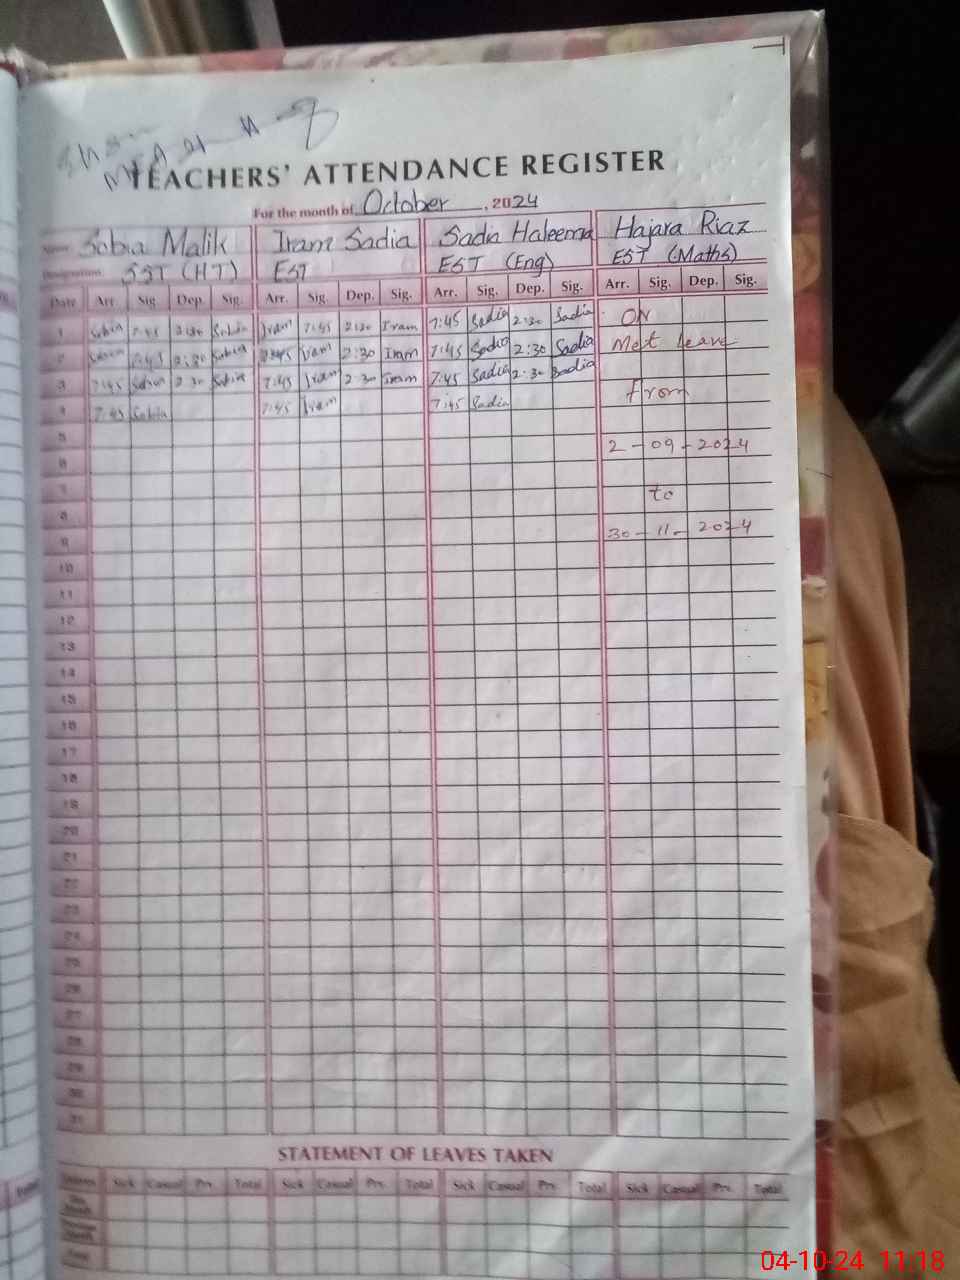 TEACHERS' ATTENDANCE REGISTER
For the month of October, 2024
Name Sobia Malik Iram Sadia Sadia Haleema Hajara Riaz
Designation SST (HT) EST EST (Eng) EST (Maths)
Date Arr. Sig. Dep. Sig. Arr. Sig. Dep. Sig. Arr. Sig. Dep. Sig. Arr. Sig. Dep. Sig.
1 Sobia 7:45 2:30 Sobia Iram 7:45 2:30 Iram 7:45 Sadia 2:30 Sadia ON
2 Sobia 7:45 2:30 Sobia Iram 2:30 Iram 7:45 Sadia 2:30 Sadia Met leave
3 7:45 Sobia 2:30 Sobia 7:45 Iram 2:30 Iram 7:45 Sadia 2:30 Sadia
4 7:45 Sobia 7:45 Iram 7:45 Sadia from
5
6 2-09-2024
7
8 to
9 30-11-2024
10
11
12
13
14
15
16
17
18
19
20
21
22
23
24
25
26
27
28
29
30
31
STATEMENT OF LEAVES TAKEN
Sick Casual Prv. Total Sick Casual Prv. Total Sick Casual Prv. Total Sick Casual Prv. Total
Month
Month
Total
04-10-24 11:18